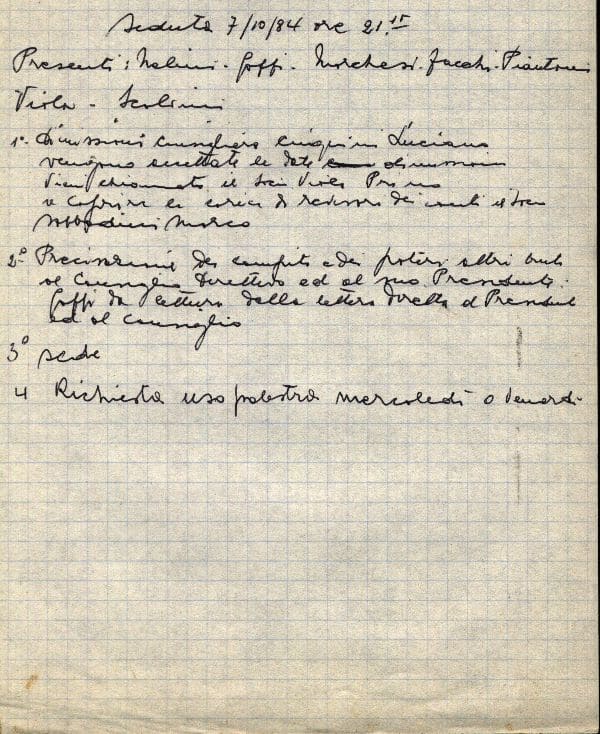 Seduta 7/10/84 ore 21.15
Presenti: Nalini - Goffi - Marchesi - Facchi - Piantoni
Viola - Scolini
1°- Dimissioni consigliere Luciano
vengono accettate le date dimissioni
Vien chiamato il Socio Viola Primo
a Coprire la carica di revisore dei conti il Socio
Marco
2° Precisazione dei compiti e dei poteri attribuiti
al Consiglio Direttivo ed al suo Presidente.
Goffi da lettura della lettera diretta al President
ed al Consiglio
3° sede
4 Richiesta uso palestra mercoledi o Venerdi